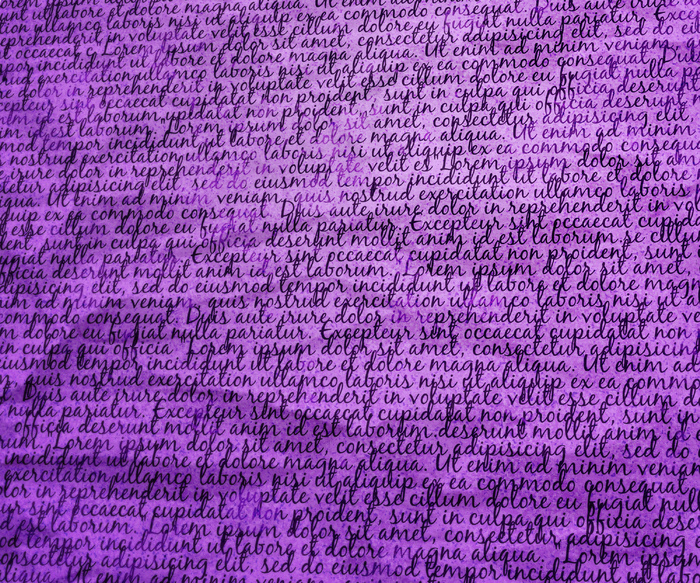 magna aliqua. Ut enim ad minim
voluptate velit esse cillum dolore eu fugiat nulla pariatur. Exc
reprehenderit in Lorem ipsum dolor sit amet, consectetur adipisicing elit, sed do
occaecat c
incididunt ut labore et dolore magna aliqua. Ut enim ad minim veniam
exercitation ullamco laboris nisi ut aliquip ex ea commodo consequat. Duis
dolor in reprehenderit in voluptate velit esse cillum dolore eu fugiat nulla p
occaecat cupidatat non proident, sunt in culpa qui officia deserunt
id est laborum. Lorem ipsum dolor sit amet, consectetur adipisicing elit
tempor incididunt ut labore et dolore magna aliqua. Ut enim ad minim
nostrud exercitation ullamco laboris nisi ut aliquip ex ea commodo consequat
irure dolor in reprehenderit in voluptate velit es Lorem ipsum dolor sit am
adipisicing elit, sed do eiusmod tempor incididunt ut labore et dolore
Ut enim ad minim veniam, quis nostrud exercitation ullamco laboris
ex ea commodo consequat. Duis aute irure dolor in reprehenderit in vol
esse cillum dolore eu fugiat nulla pariatur. Excepteur sint occaecat cupidatat
sunt in culpa qui officia deserunt mollit anim id est laborum.se cillum
nulla pariatur. Excepteur sint occaecat cupidatat non proident, sunt in
officia deserunt mollit anim id est laborum. Lorem ipsum dolor sit amet
adipisicing elit, sed do eiusmod tempor incididunt ut labore et dolore magna
ad minim veniam, quis nostrud exercitation ullamco laboris nisi ut al
consequat. Duis aute irure dolor in reprehenderit in voluptate velit esse
dolore eu fugiat nulla pariatur. Excepteur sint occaecat cupidatat non
in culpa qui officia Lorem ipsum dolor sit amet, consectetur adipisicing
eiusmod tempor incididunt ut labore et dolore magna aliqua. Ut enim ad
quis nostrud exercitation ullamco laboris nisi ut aliquip ex ea commo
Duis aute irure dolor in reprehenderit in voluptate velit esse cillum
nulla pariatur. Excepteur sint occaecat cupidatat non proident, sunt in
officia deserunt mollit anim id est laborum.deserunt mollit anim id est
Lorem ipsum dolor sit amet, consectetur adipisicing elit, sed do
incididunt ut labore et dolore magna aliqua. Ut enim ad minim veniam
exercitation ullamco laboris nisi ut aliquip ex ea commodo consequat
dolor in reprehenderit in voluptate velit esse cillum dolore eu fugiat nulla
sint occaecat cupidatat non proident, sunt in culpa qui officia deserunt
est laborum. Lorem ipsum dolor sit amet, consectetur adipisicing elit
tempor incididunt ut labore et dolore magna aliqua. Ut enim ad minim
consectetur adipisicing elit, sed do eiusmod tempor incididunt Lorem ipsum
aliqua. Ut enim ad minim